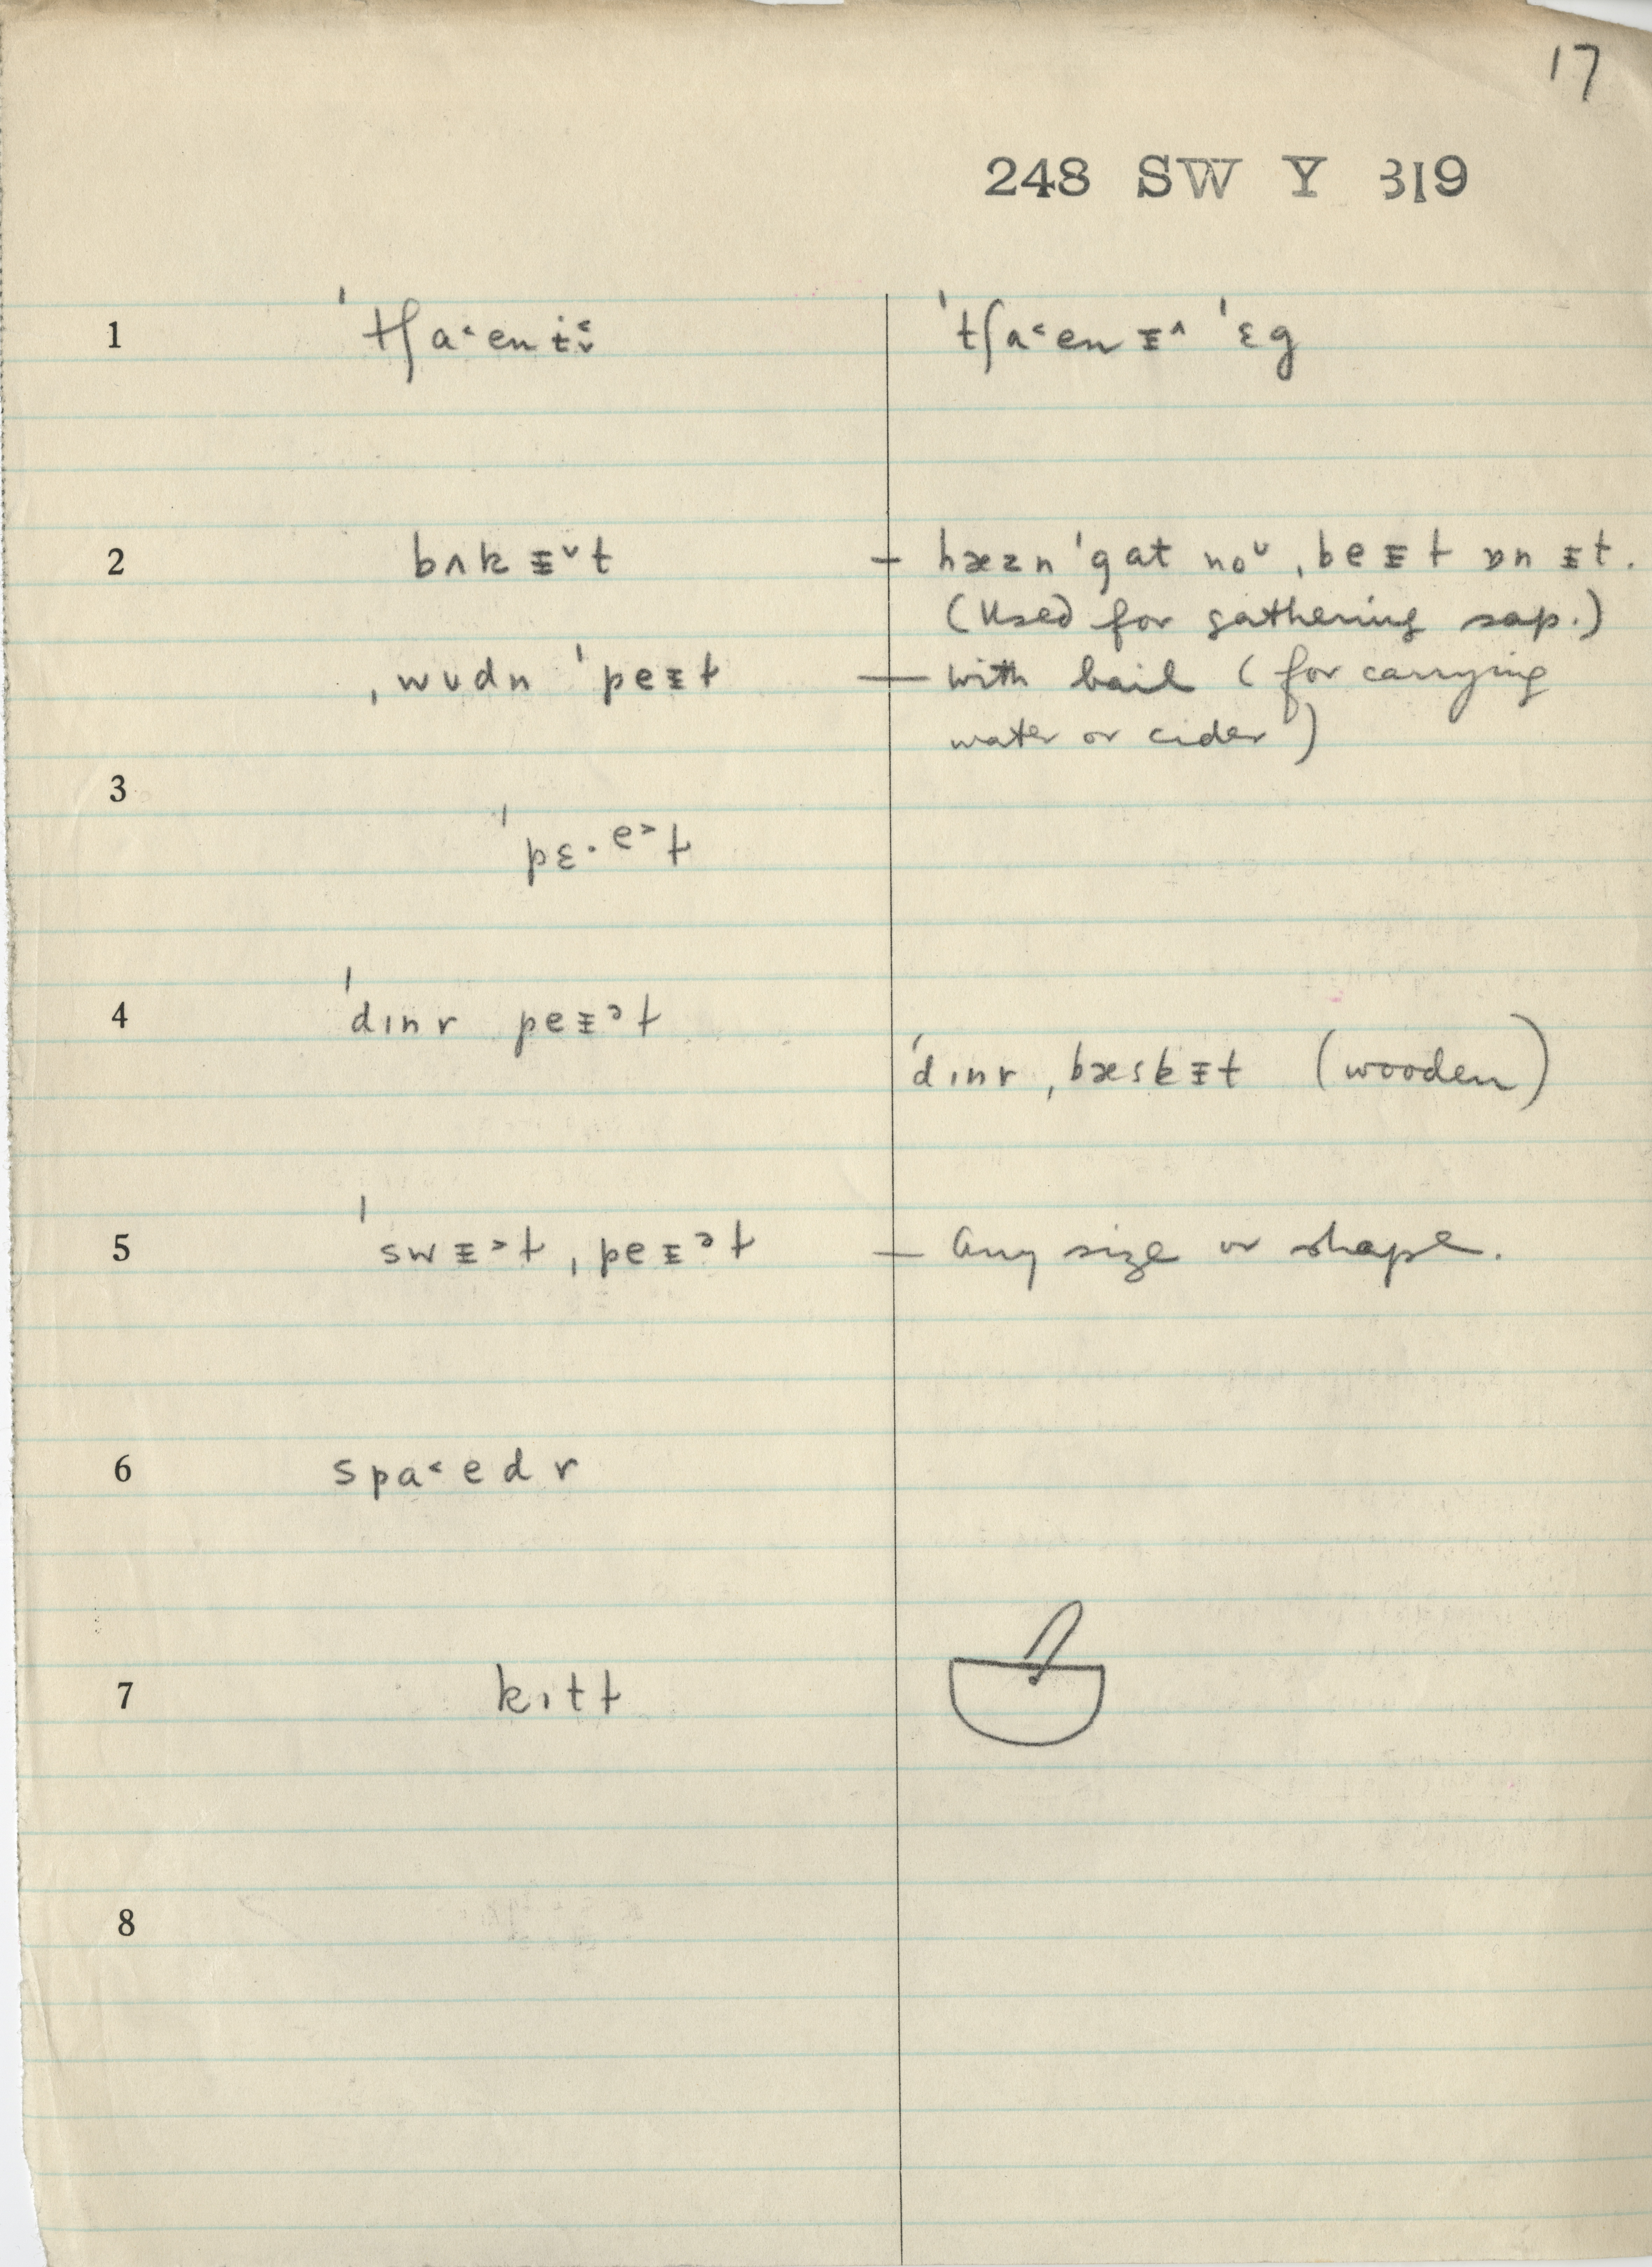 17
248 SW Y 319
1 ˈtʃa˂enɨ˂˅ ˈtʃa˂enɪ̵˄ ˈɛg
2 bʌkɪ̵˅t – hæzn ˈgat no ᴜ ˌbeɪ̵ɫ ɒn ɪ̵t.
(Used for gathering sap.)
ˌwᴜdn ˈpeɪ̵ɫ — with bail (for carrying
water or cider)
3
ˈpɛ·e˃ɫ
4 ˈdɪnr peɪ̵ᵊɫ
ˈdɪnr ˌbæskɪ̵t (wooden)
5 ˈswɪ̵˃ɫ ˌpeɪ̵ᵊɫ – Any size or shape.
6 spa˂edr
7 kɪtɫ
8